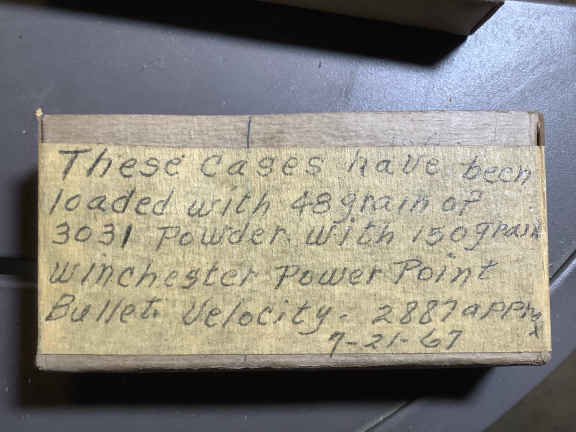 These Cases have been
loaded with 48 grain of
3031 Powder. With 150 grain
Winchester Power Point
Bullet. Velocity - 2887 approx
7-21-67